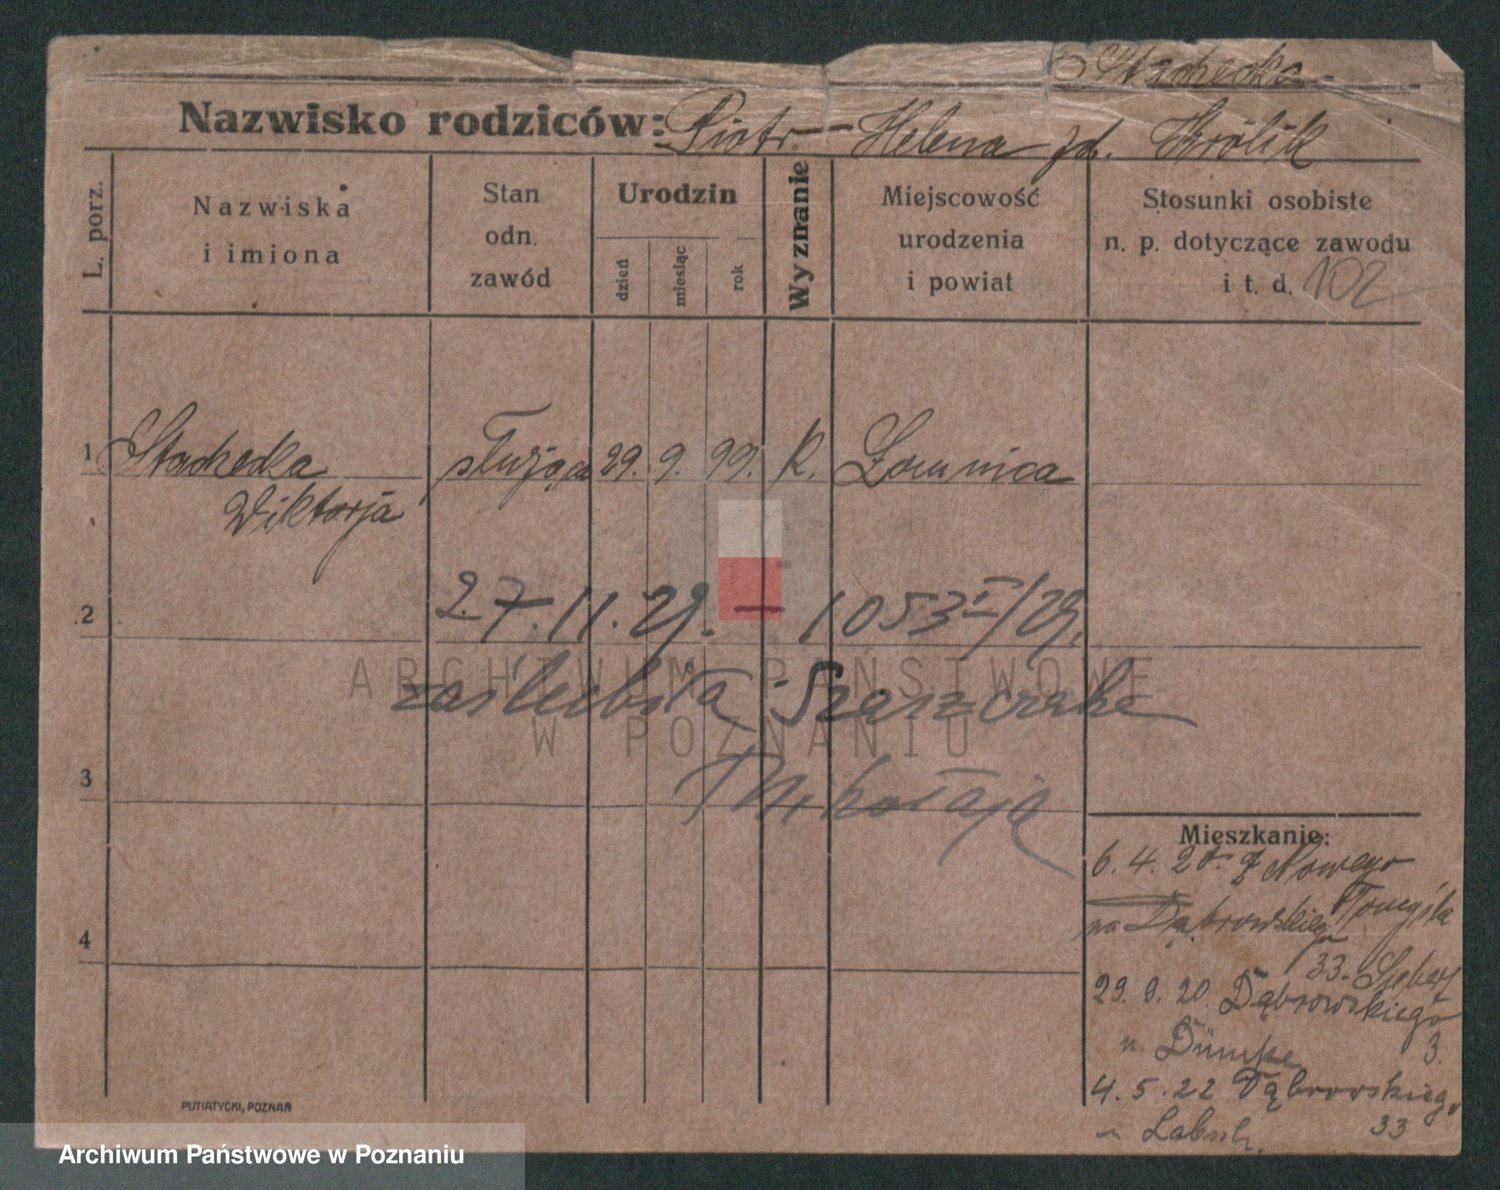 Stachecka
Nazwisko rodziców: Piotr - Helena zd. Królik
L. porz.
Nazwiska
i imiona
Stan
odn.
zawód
Urodzin
dzień
miesiąc
rok
Wyznanie
Miejscowość
urodzenia
i powiat
Stosunki osobiste
n. p. dotyczące zawodu
i t. d. 102
1 Stachecka służąca 29. 9. 99. K. Łomnica
Wiktorja
2 27. 11. 29. - 1053 I/29.
zaślubiła
3 Mikołaja
4
Mieszkanie:
6. 4. 20. z Nowego
Tomyśla
na Dąbrowskiego
33.
29. 9. 20. Dąbrowskiego
3.
u.
4. 5. 22 Dąbrowskiego
33
u
PUTIATYCKI, POZNAŃ
ARCHIWUM PAŃSTWOWE
W POZNANIU
Archiwum Państwowe w Poznaniu